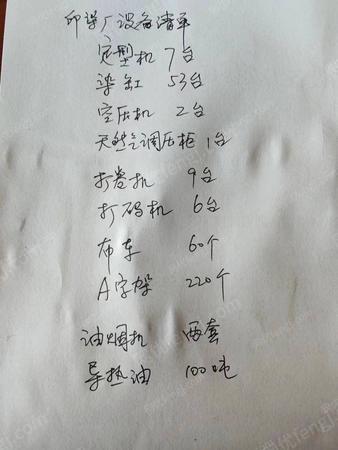 印染厂设备清单
定型机 7台
染缸 53台
空压机 2台
天然气调压柜 1台
打卷机 9台
打码机 6台
布车 60个
A字架 220个
油烟机 两套
导热油 100吨